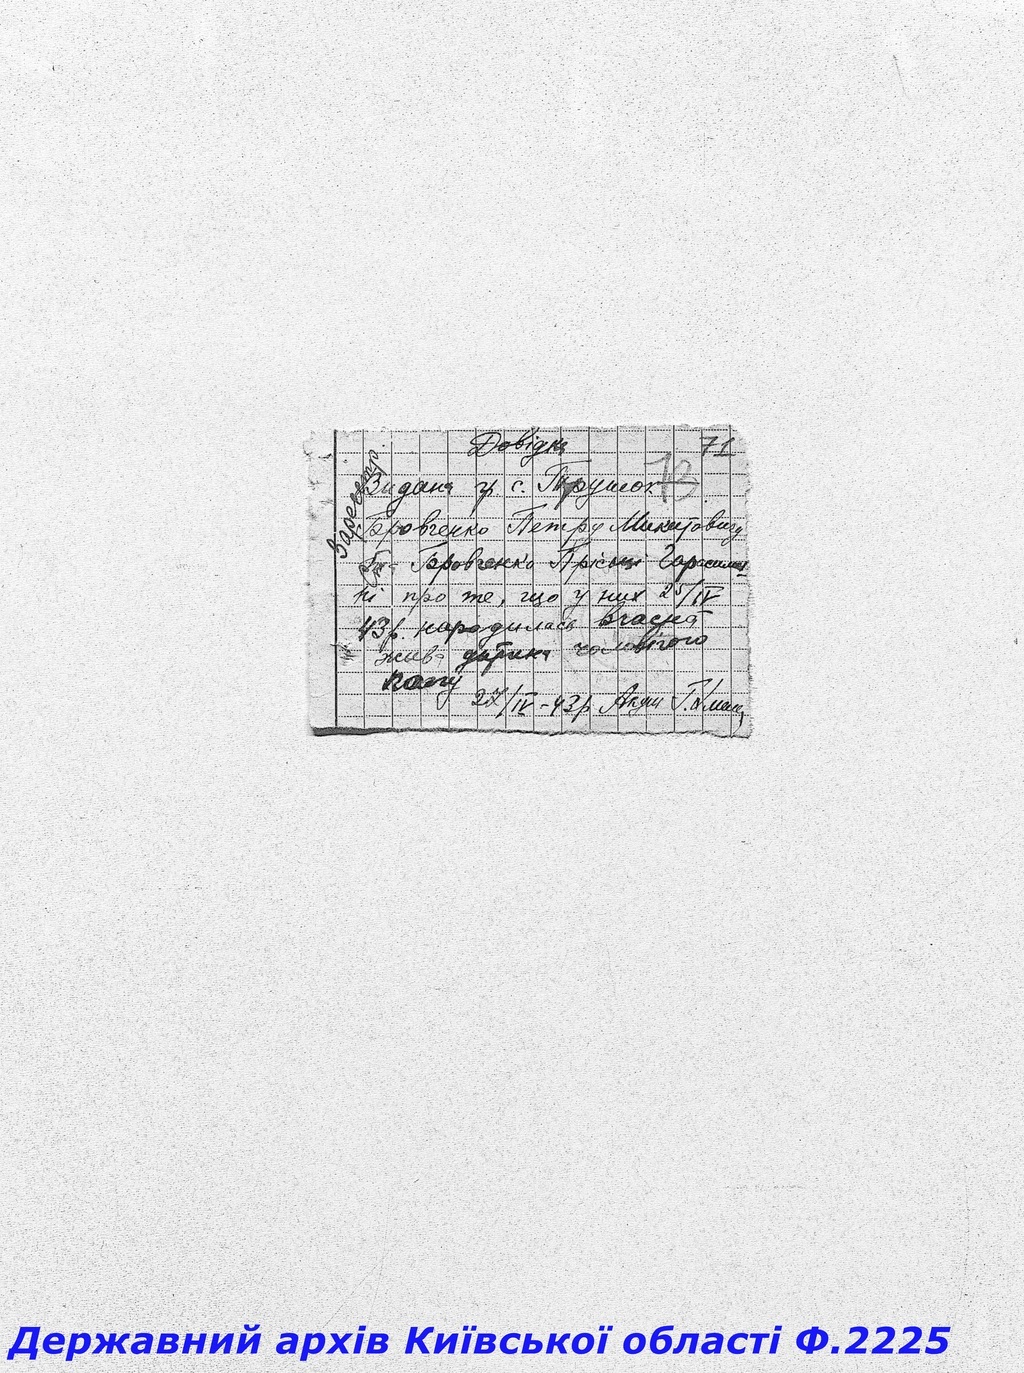 Довідка 71
Видана у с. Трушок 73
Зареєстр.
Бровченко Петру Микитовичу
та Бровченко Прісьці Гарасимі
ні про те, що у них 25/IV
43р. народилась вчасна
жива дитина чоловічого
полу
27/IV-43р Акуш
Державний архів Київської області Ф.2225